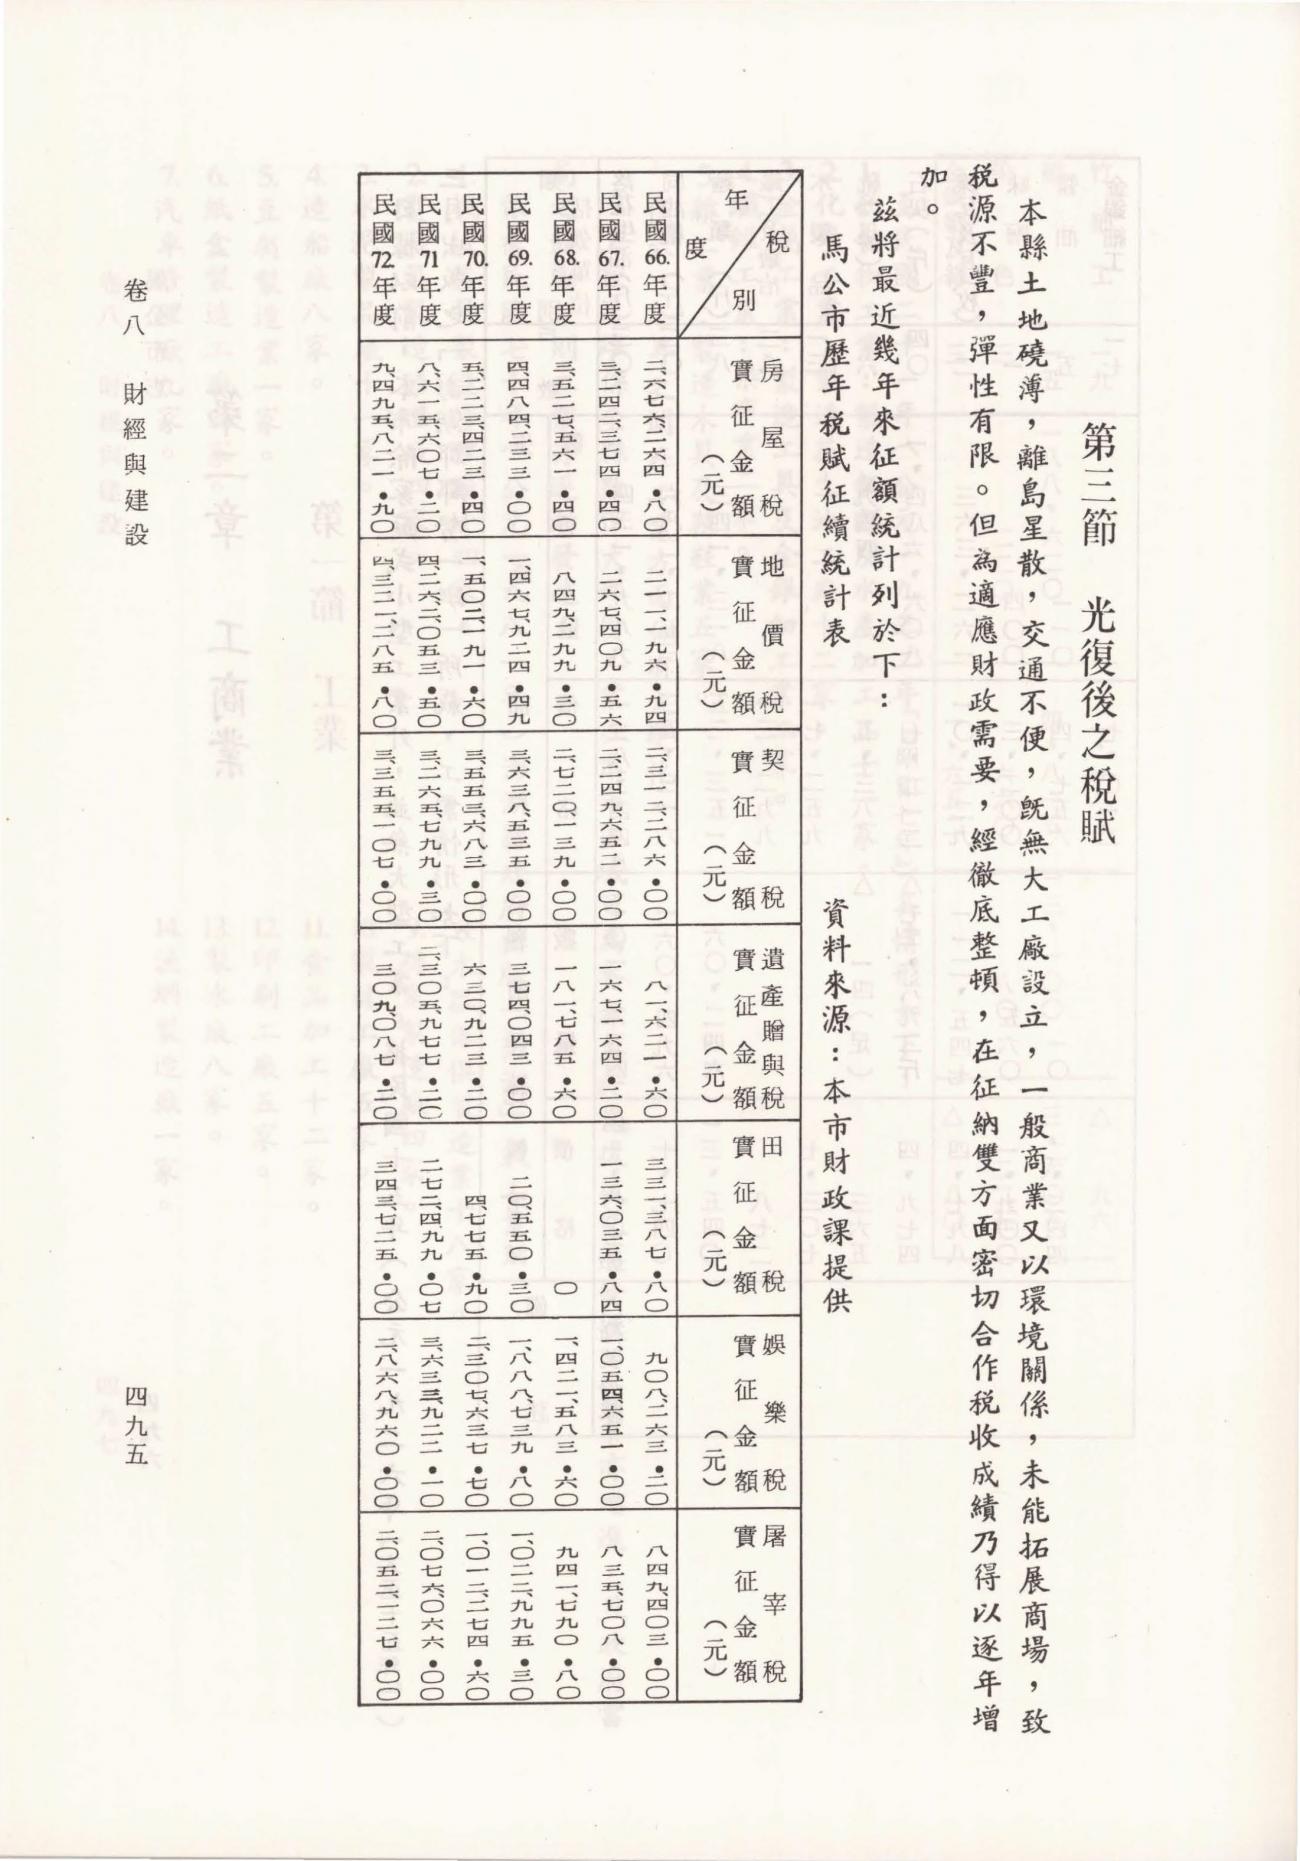 第三節　光復後之稅賦
本縣土地磽薄，離島星散，交通不便，既無大工廠設立，一般商業又以環境關係，未能拓展商場，致
稅源不豐，彈性有限。但為適應財政需要，經徹底整頓，在征納雙方面密切合作稅收成績乃得以逐年增
加。
茲將最近幾年來征額統計列於下：
馬公市歷年稅賦征續統計表　資料來源：本市財政課提供
年度　稅別　房屋稅實征金額（元）　地價稅實征金額（元）　契稅實征金額（元）　遺產贈與稅實征金額（元）　田稅實征金額（元）　娛樂稅實征金額（元）　屠宰稅實征金額（元）
民國66.年度　二、六七六、二六四•八〇　二一一、一九六•九四　二、三一二、二八六•〇〇　八一、六二一•六〇　三三一、三八七•八〇　九〇八、二六三•二〇　八四九、四〇三•〇〇
民國67.年度　三、二四二、三七四•四〇　二六七、四〇九•五六　二、二四九、六五二•〇〇　一六七、一六四•二〇　一三六、〇三五•八四　一、〇五四、六五一•〇〇　八三五、七〇八•〇〇
民國68.年度　三、五二七、五六一•四〇　八四九、二九九•三〇　二、七二〇、一三九•〇〇　一八一、七八五•六〇　〇　一、四二一、五八三•六〇　九四一、七九〇•八〇
民國69.年度　四、四八四、二三三•〇〇　一、四六七、九二四•四九　三、六三八、五三五•〇〇　三七四、〇四三•〇〇　二〇、五五〇•三〇　一、八八八、七三九•八〇　一、〇二二、九九五•三〇
民國70.年度　五、二二三、四二三•四〇　一、五〇二、一九一•六〇　三、五五三、六八三•〇〇　六三〇、九二三•二〇　四、七七五•九〇　二、三〇七、六三七•七〇　一、〇一二、二七四•六〇
民國71年度　八、六一五、六〇七•二〇　四、二六二、〇五三•五〇　三、二六五、七九九•三〇　二、三〇五、九七七•二〇　二七二、四九九•〇七　三、六三三、九二二•一〇　二、〇七六、〇六六•〇〇
民國72.年度　九、四九五、八二一•九〇　四、三二一、二八五•八〇　三、三五五、一〇七•〇〇　三〇九、〇八七•二〇　三四三、七二五•〇〇　二、八六八、九六〇•〇〇　二、〇五二、一二七•〇〇
卷八　財經與建設
四九五